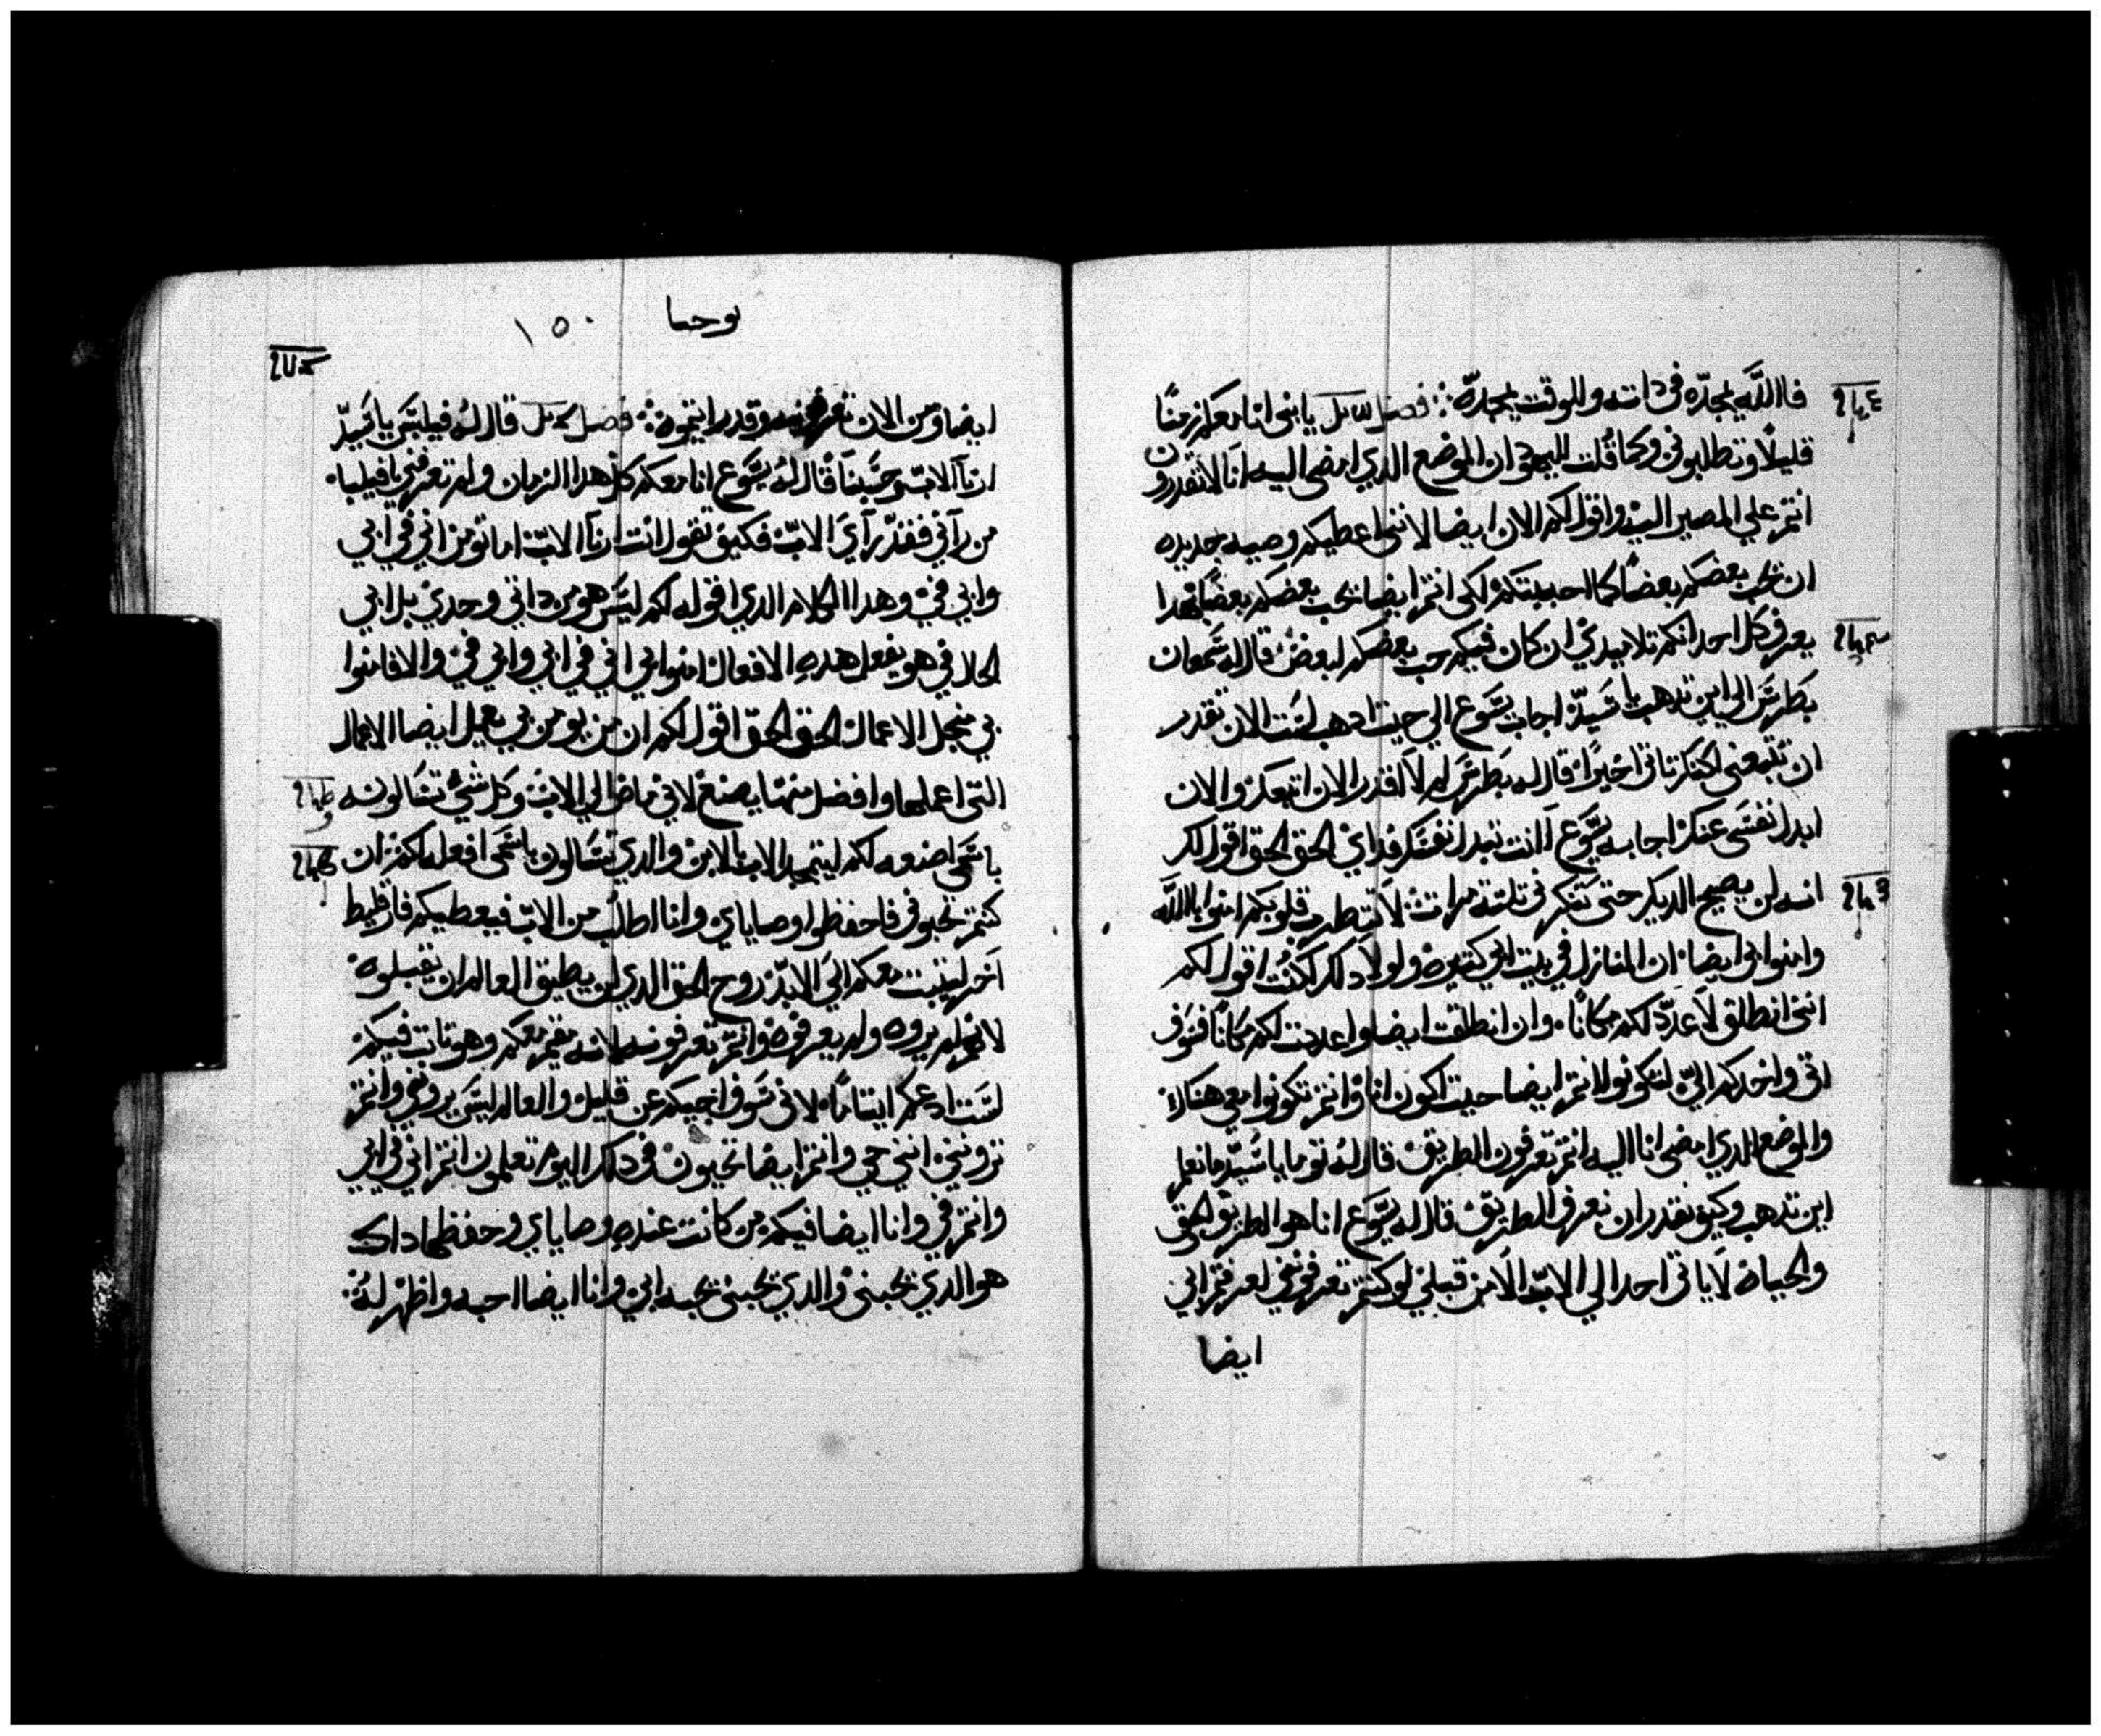 فاالله يمجده في داته وللوقت يمجده ∴ فصل يابني انا معكم زمنًا
قليلًا وتطلبوني وكما قُلت لليهود ان الموضع الدي امضي اليه انا لا تقدرون
انتم علي المصير اليه واقول لكم الان ايضا لانني اعطيكم وصيه جديده
ان يحب بعضكم بعضًا كما احببتكم لكي انتم ايضا يحب بعضكم بعضًا بهدا
يعرف كل احد انكم تلاميدي ان كان فيكم حب بعضكم لبعض قال له سمعان
بطرس الي اين تدهب يا سيد اجاب يسوع الي حيت ادهب لست الان تقدر
ان تتبعني لكنك تاتي اخيرًا قال له بطرس لم لا اقدر الان اتبعك والان
ابدل نفسي عنك اجابه يسوع اانت تبدل نفسك فداي الحق الحق اقول لك
انه لن يصيح الديك حتي تنكرني تلته مرات لا تضطرب قلوبكم امنوا باالله
وامنوا بي ايضا ان المنازل في بيت ابي كتيره ولولا دلك لكنت اقول لكم
انني انطلق لاعد لكم مكانًا وان انطلقت ايضا واعددت لكم مكانًا فسوف
اتي واخدكم الي لتكونوا انتم ايضا حيت اكون انا وانتم تكونوا معي هناك
والموضع الدي امضي انا اليه انتم تعرفون الطريق قال له توما يا سيد ما نعلم
اين تدهب وكيف نقدر ان نعرف الطريق قال له يسوع انا هو الطريق والحق
والحياه لا ياتي احد الي الاب الا من قبلي لو كنتم تعرفوني لعرفتم ابي
ايضا
يوحنا ١٥٠
ايضا ومن الان تعرفونه وقد رايتموه ∴ فصل قال له فيلبس يا سيد
ارنا الاب وحسبنا قال له يسوع انا معكم كل هدا الزمان ولم تعرفني يا فيلبا
من رآني فقد رآي الاب فكيف تقول انت ارنا الاب اما تومن اني في ابي
وابي في وهدا الكلام الدي اقوله لكم ليس هو من داتي وحدي بل ابي
الحال في هو يفعل هده الافعال امنوا بي اني في ابي وابي في والا فامنوا
بي منجل الاعمال الحق الحق اقول لكم ان من يومن بي يعمل ايضا الاعمال
التي اعملها وافضل منها يصنع لاني ماض الي الاب وكل شي تسالونه
باسمي اصنعه لكم ليتمجد الاب بالابن والدي تسالون باسمي افعله لكم ان
كنتم تحبوني فاحفظوا وصاياي وانا اطلب من الاب فيعطيكم فارقليط
آخر ليتبت معكم الي الابد روح الحق الدي لن يطيق العالم ان يقبلوه
لانهم لم يروه ولم يعرفوه وانتم تعرفونه لانه مقيم معكم وهو تابت فيكم
لست ادعكم ايتامًا لاني سوف اجيكم عن قليل والعالم ليس يروني وانتم
تروني انني حي وانتم ايضا تحيون في دلك اليوم تعلمون انتم اني في ابي
وانتم في وانا ايضا فيكم من كانت عنده وصاياي وحفظها داك
هو الدي يحبني والدي يحبني يحبه ابي وانا ايضا احبه واظهر له